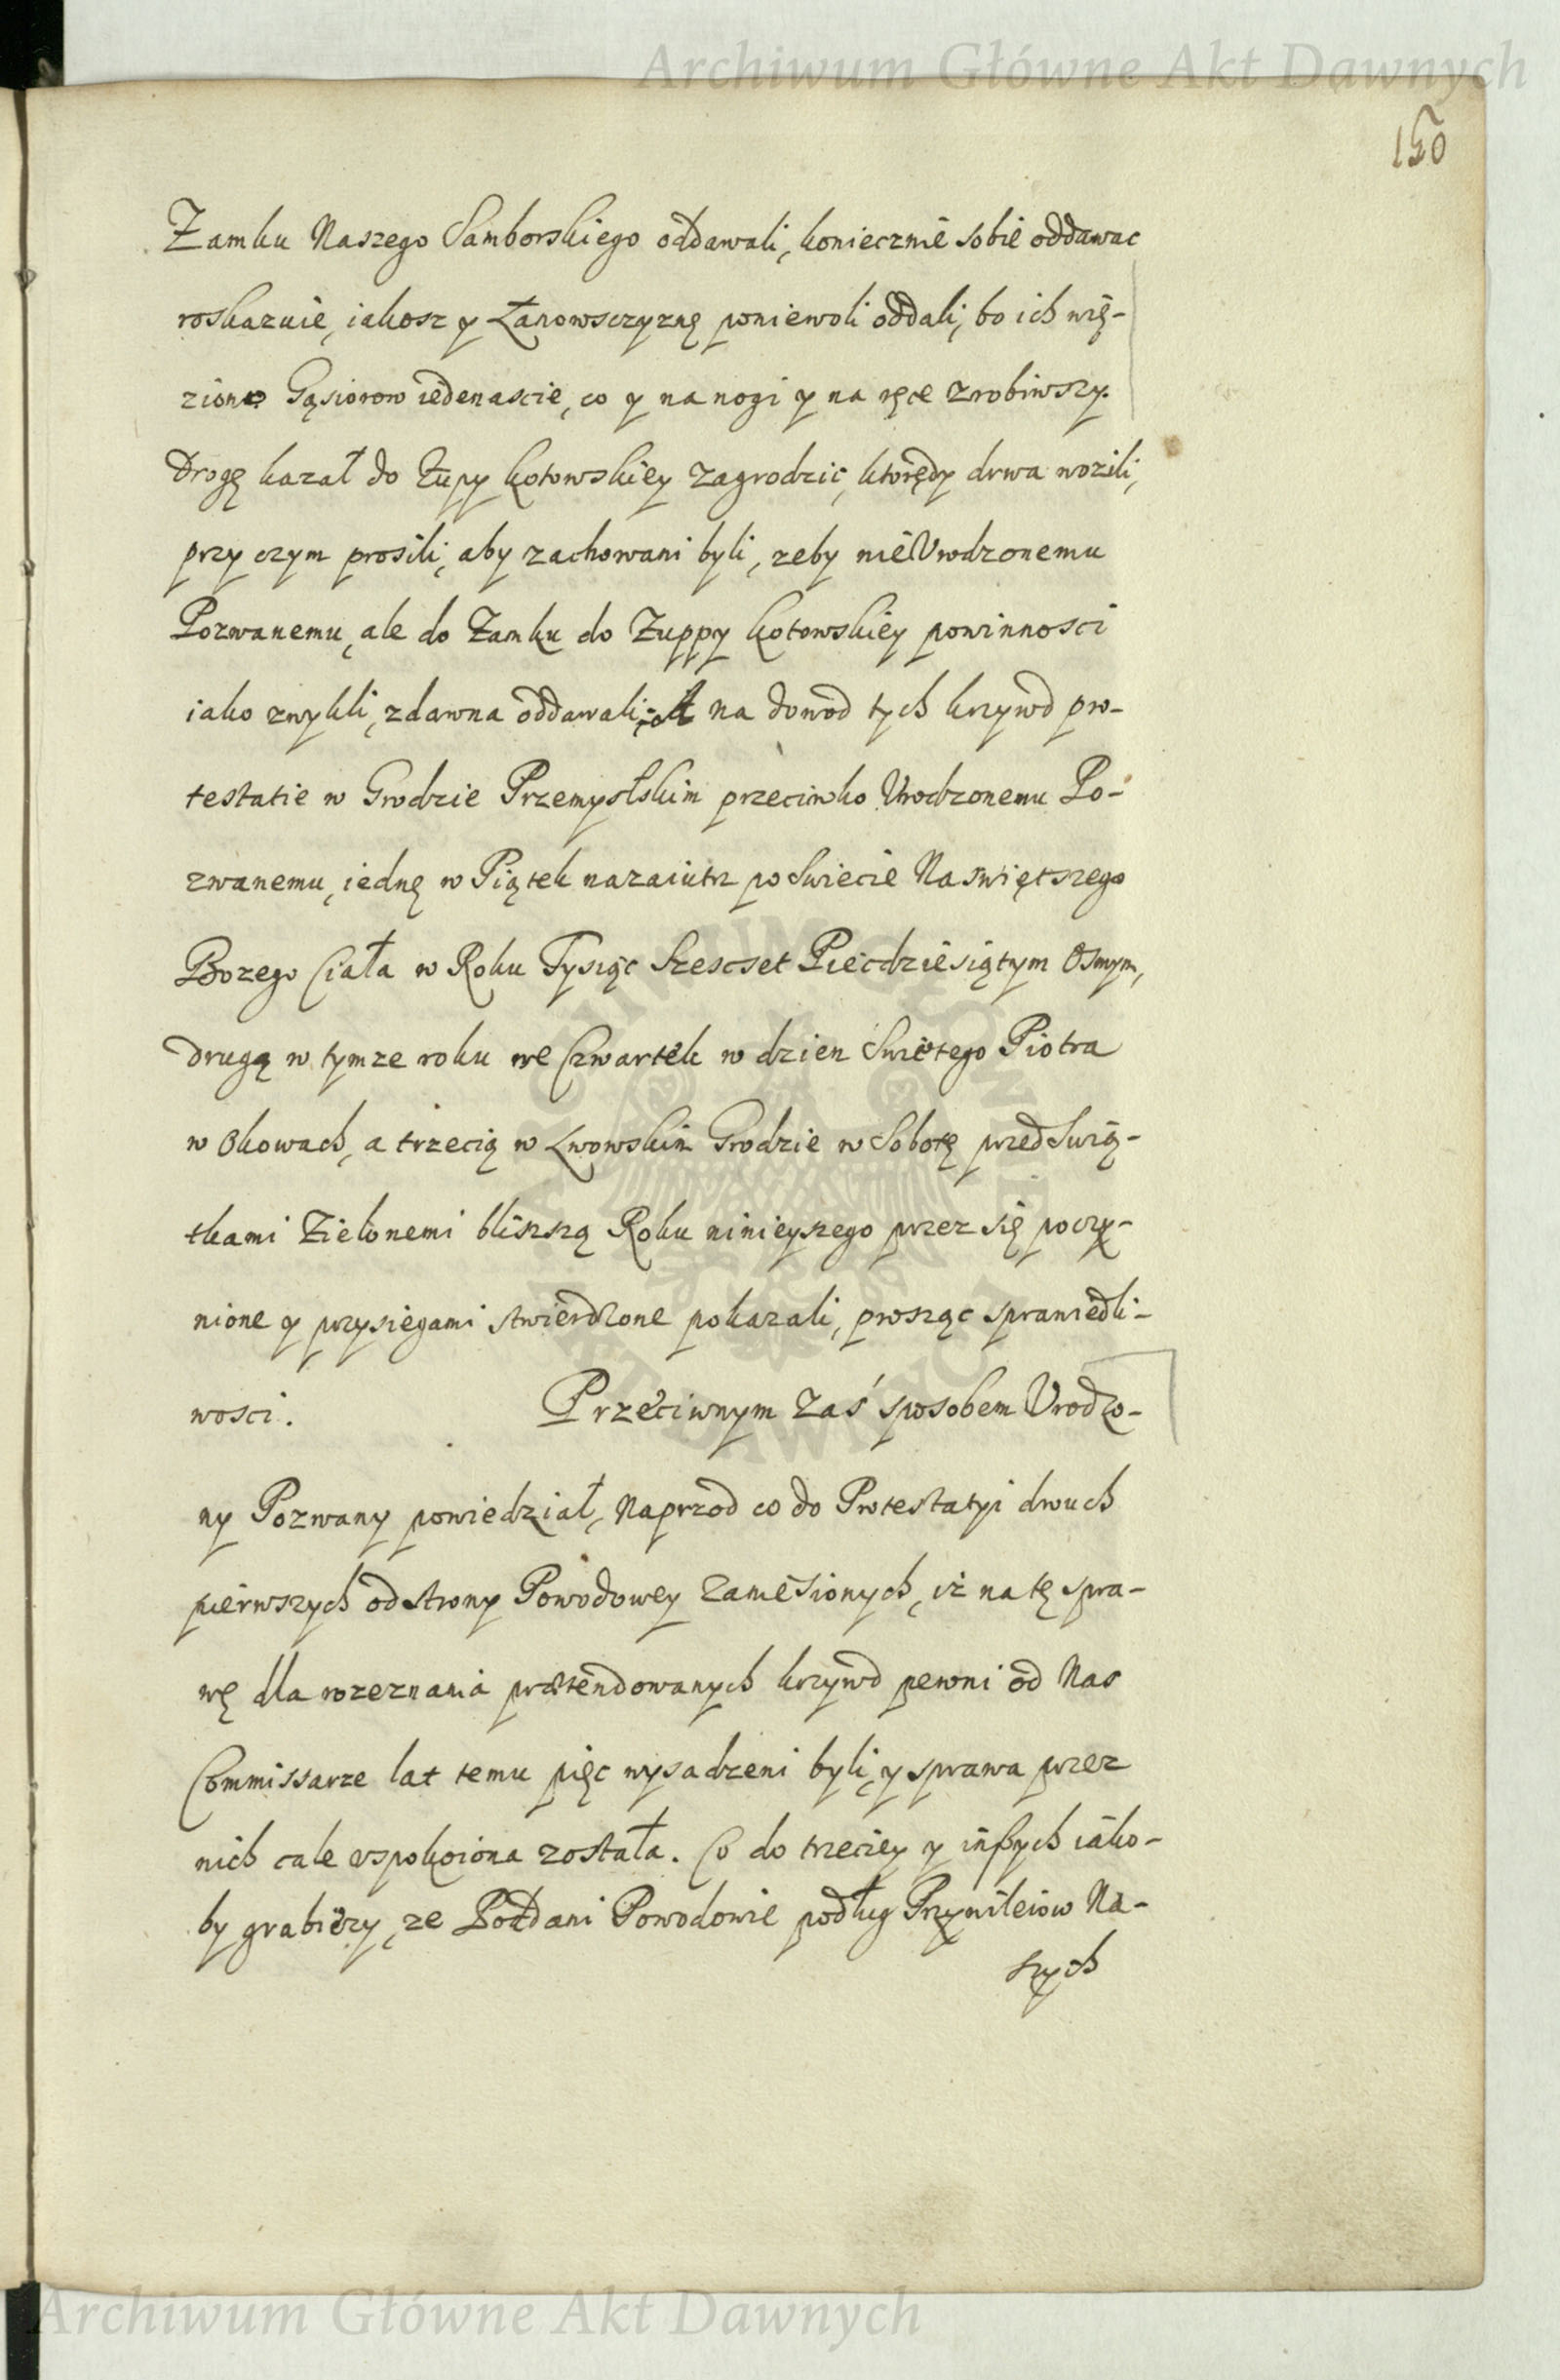 Archiwum Główne Akt Dawnych
150
Zamku Naszego Samborskiego oddawali, koniecznie sobie oddawac
roskazuie, iakosz y Łanowsczyznę poniewoli oddali, bo ich wię-
ziono Gąsiorow iedenascie, co y na nogi y na ręce zrobiwszy.
Drogę kazał do Żupy kotowskiey zagrodzić, ktorędy drwa wozili,
przy czym prosili, aby zachowani byli, zeby nie Urodzonemu
Pozwanemu, ale do Zamku do Zuppy kotowskiey powinnosci
iako zwykli, zdawna oddawali; A na dowod tych krzywd pro-
testatie w Grodzie Przemyslskim przeciwko Urodzonemu Po-
zwanemu, iednę w Piątek nazaiutrz po Swiecie Naswiętszego
Bozego Ciała w Roku Tysiąc Szescset Piećdziesiątym Osmym,
drugą w tymze roku we Czwartek w dzien Swiętego Piotra
w Okowach, a trzecią w Lwowskim Grodzie w Sobotę przed Swią-
tkami Zielonemi bliszszą Roku ninieyszego przez się poczy-
nione y przysiegami stwierdzone pokazali, prosząc sprawiedli-
wosci. Przeciwnym zaś sposobem Urodzo-
ny Pozwany powiedział, Naprzod co do Protestatyi dwuch
pierwszych od strony Powodowey zaniesionych, iż na tę spra-
wę dla rozeznania prætendowanych krzywd pewni od Nas
Commissarze lat temu pięc wysadzeni byli, y sprawa przez
nich cale uspokoiona została. Co do trzeciey y inszych iako-
by grabiezy, ze Poddani Powodowie podług Przywileiow Na-
szych
Archiwum Główne Akt Dawnych